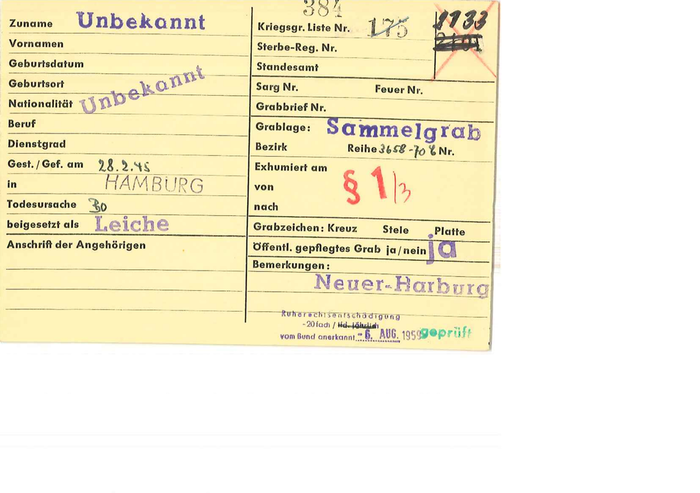 Zuname Unbekannt
Vornamen
Geburtsdatum
Geburtsort
Nationalität Unbekannt
Beruf
Dienstgrad
Gest./Gef. am 28.2.45
in HAMBURG
Todesursache
beigesetzt als Leiche
Anschrift der Angehörigen
384
Kriegsgr. Liste Nr. 175
Sterbe-Reg. Nr.
Standesamt
Sarg Nr. Feuer Nr.
Grabbrief Nr.
Grablage: Sammelgrab
Bezirk Reihe 3658-70 Nr.
Exhumiert am
von
nach
§ 1/3
Grabzeichen: Kreuz Stele Platte
Öffentl. gepflegtes Grab ja/nein ja
Bemerkungen:
Neuer-Harburg
Ruherechtsentschädigung
-20fach / lfd. jährlich
vom Bund anerkannt -6. AUG. 1959 geprüft